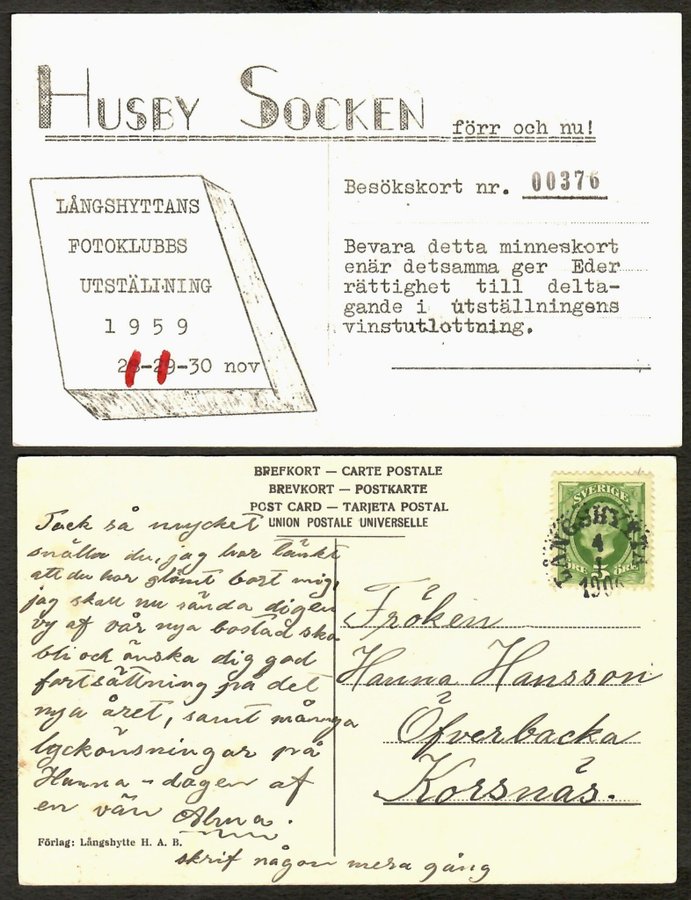 HUSBY SOCKEN förr och nu!
LÅNGSHYTTANS
FOTOKLUBBS
UTSTÄLLNING
1959
28-29-30 nov
Besökskort nr. 00376
Bevara detta minneskort
enär detsamma ger Eder
rättighet till delta-
gande i utställningens
vinstutlottning.
BREFKORT — CARTE POSTALE
BREVKORT — POSTKARTE
POST CARD — TARJETA POSTAL
UNION POSTALE UNIVERSELLE
Tack så mycket
snälla du, jag har tänkt
att du har glömt bort mig,
jag skall nu sända dig en
vy af vår nya bostad ska
bli och önska dig god
fortsättning på det
nya året, samt många
lyckönsningar på
Hanna-dagen af
en vän Alma.
skrif någon mera gång
Förlag: Långshytte H. A. B.
SVERIGE
5 ÖRE
LÅNGSHYTTAN
4
1
Fröken
Hanna Hansson
Öfverbacka
Korsnäs.